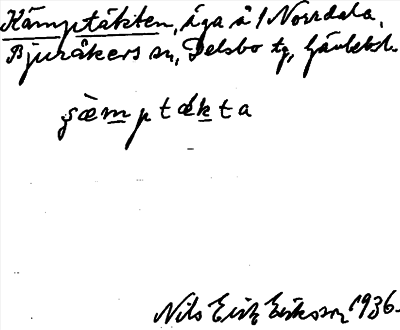 Kämptäkten, äga å 1 Norrdala,
Bjuråkers sn, Delsbo tg, Gävlebl.
gæ̀mptǽkta
Nils Erik Eriksson 1936.